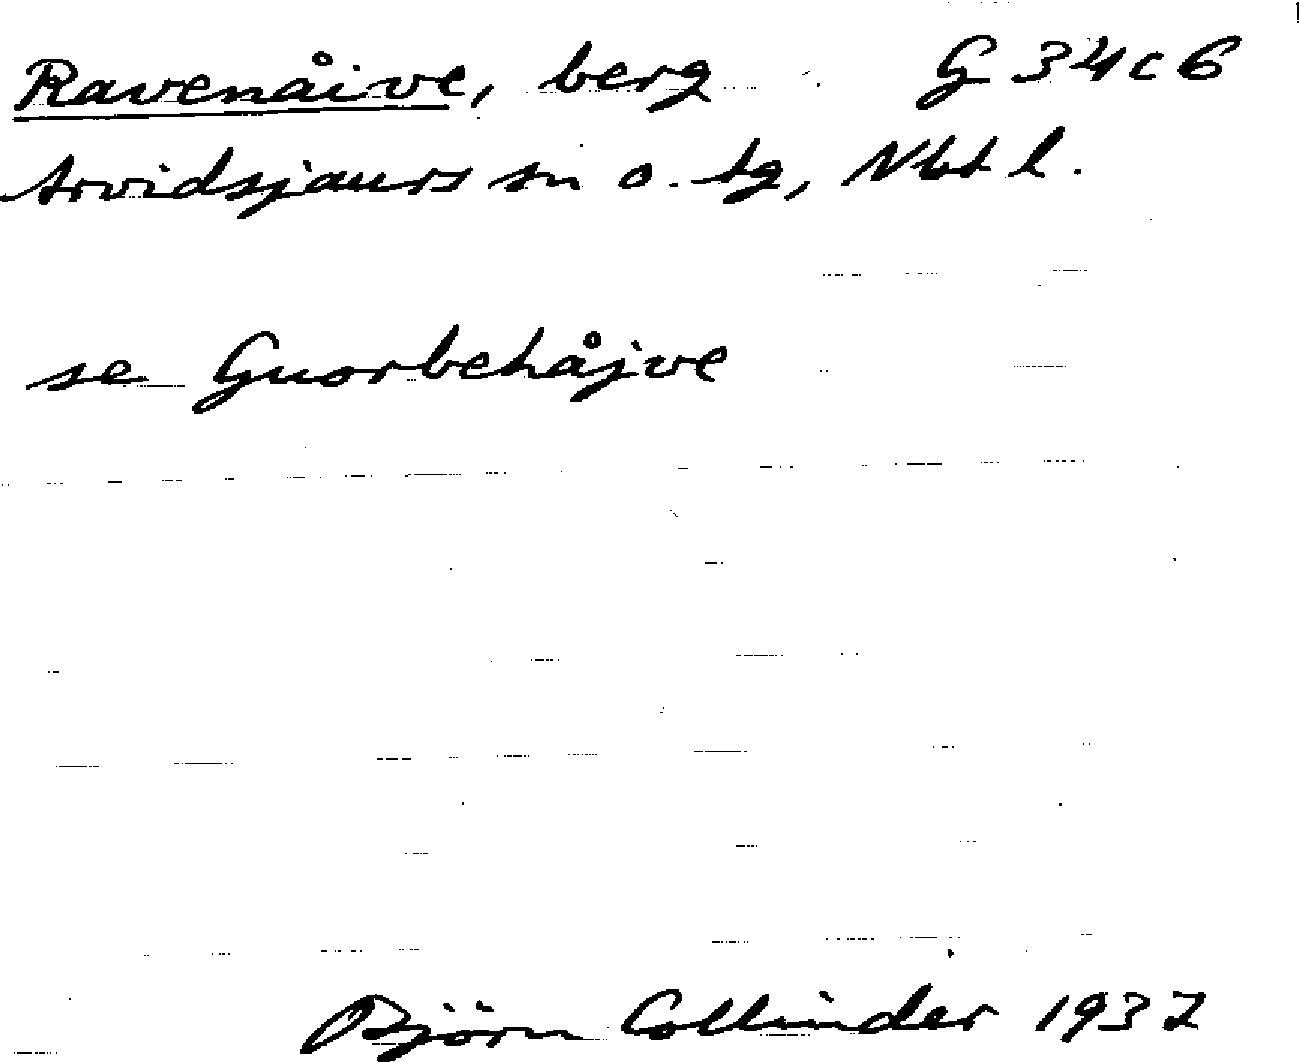 Ravenåive, berg G 34 c 6
Arvidsjaurs sn o. tg, Nbt l.
se Guorbehåjve
Björn Collinder 1937